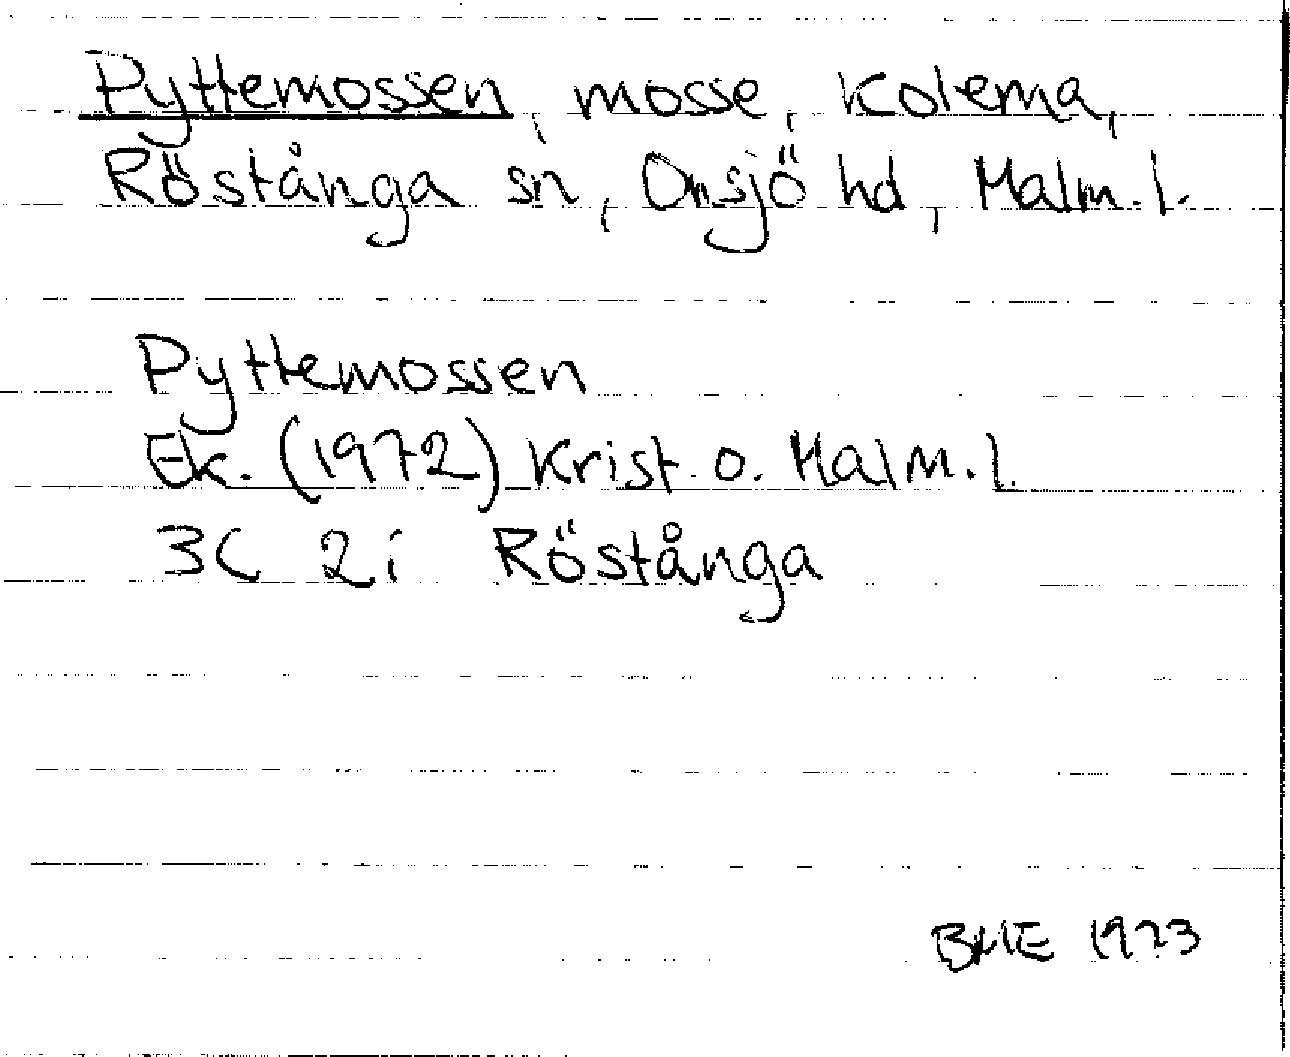 Pyttemossen, mosse, Kolema,
Röstånga sn, Onsjö hd, Malm. l.
Pyttemossen
Ek. (1972) Krist. o. Malm. l.
3C 2i Röstånga
BME 1973